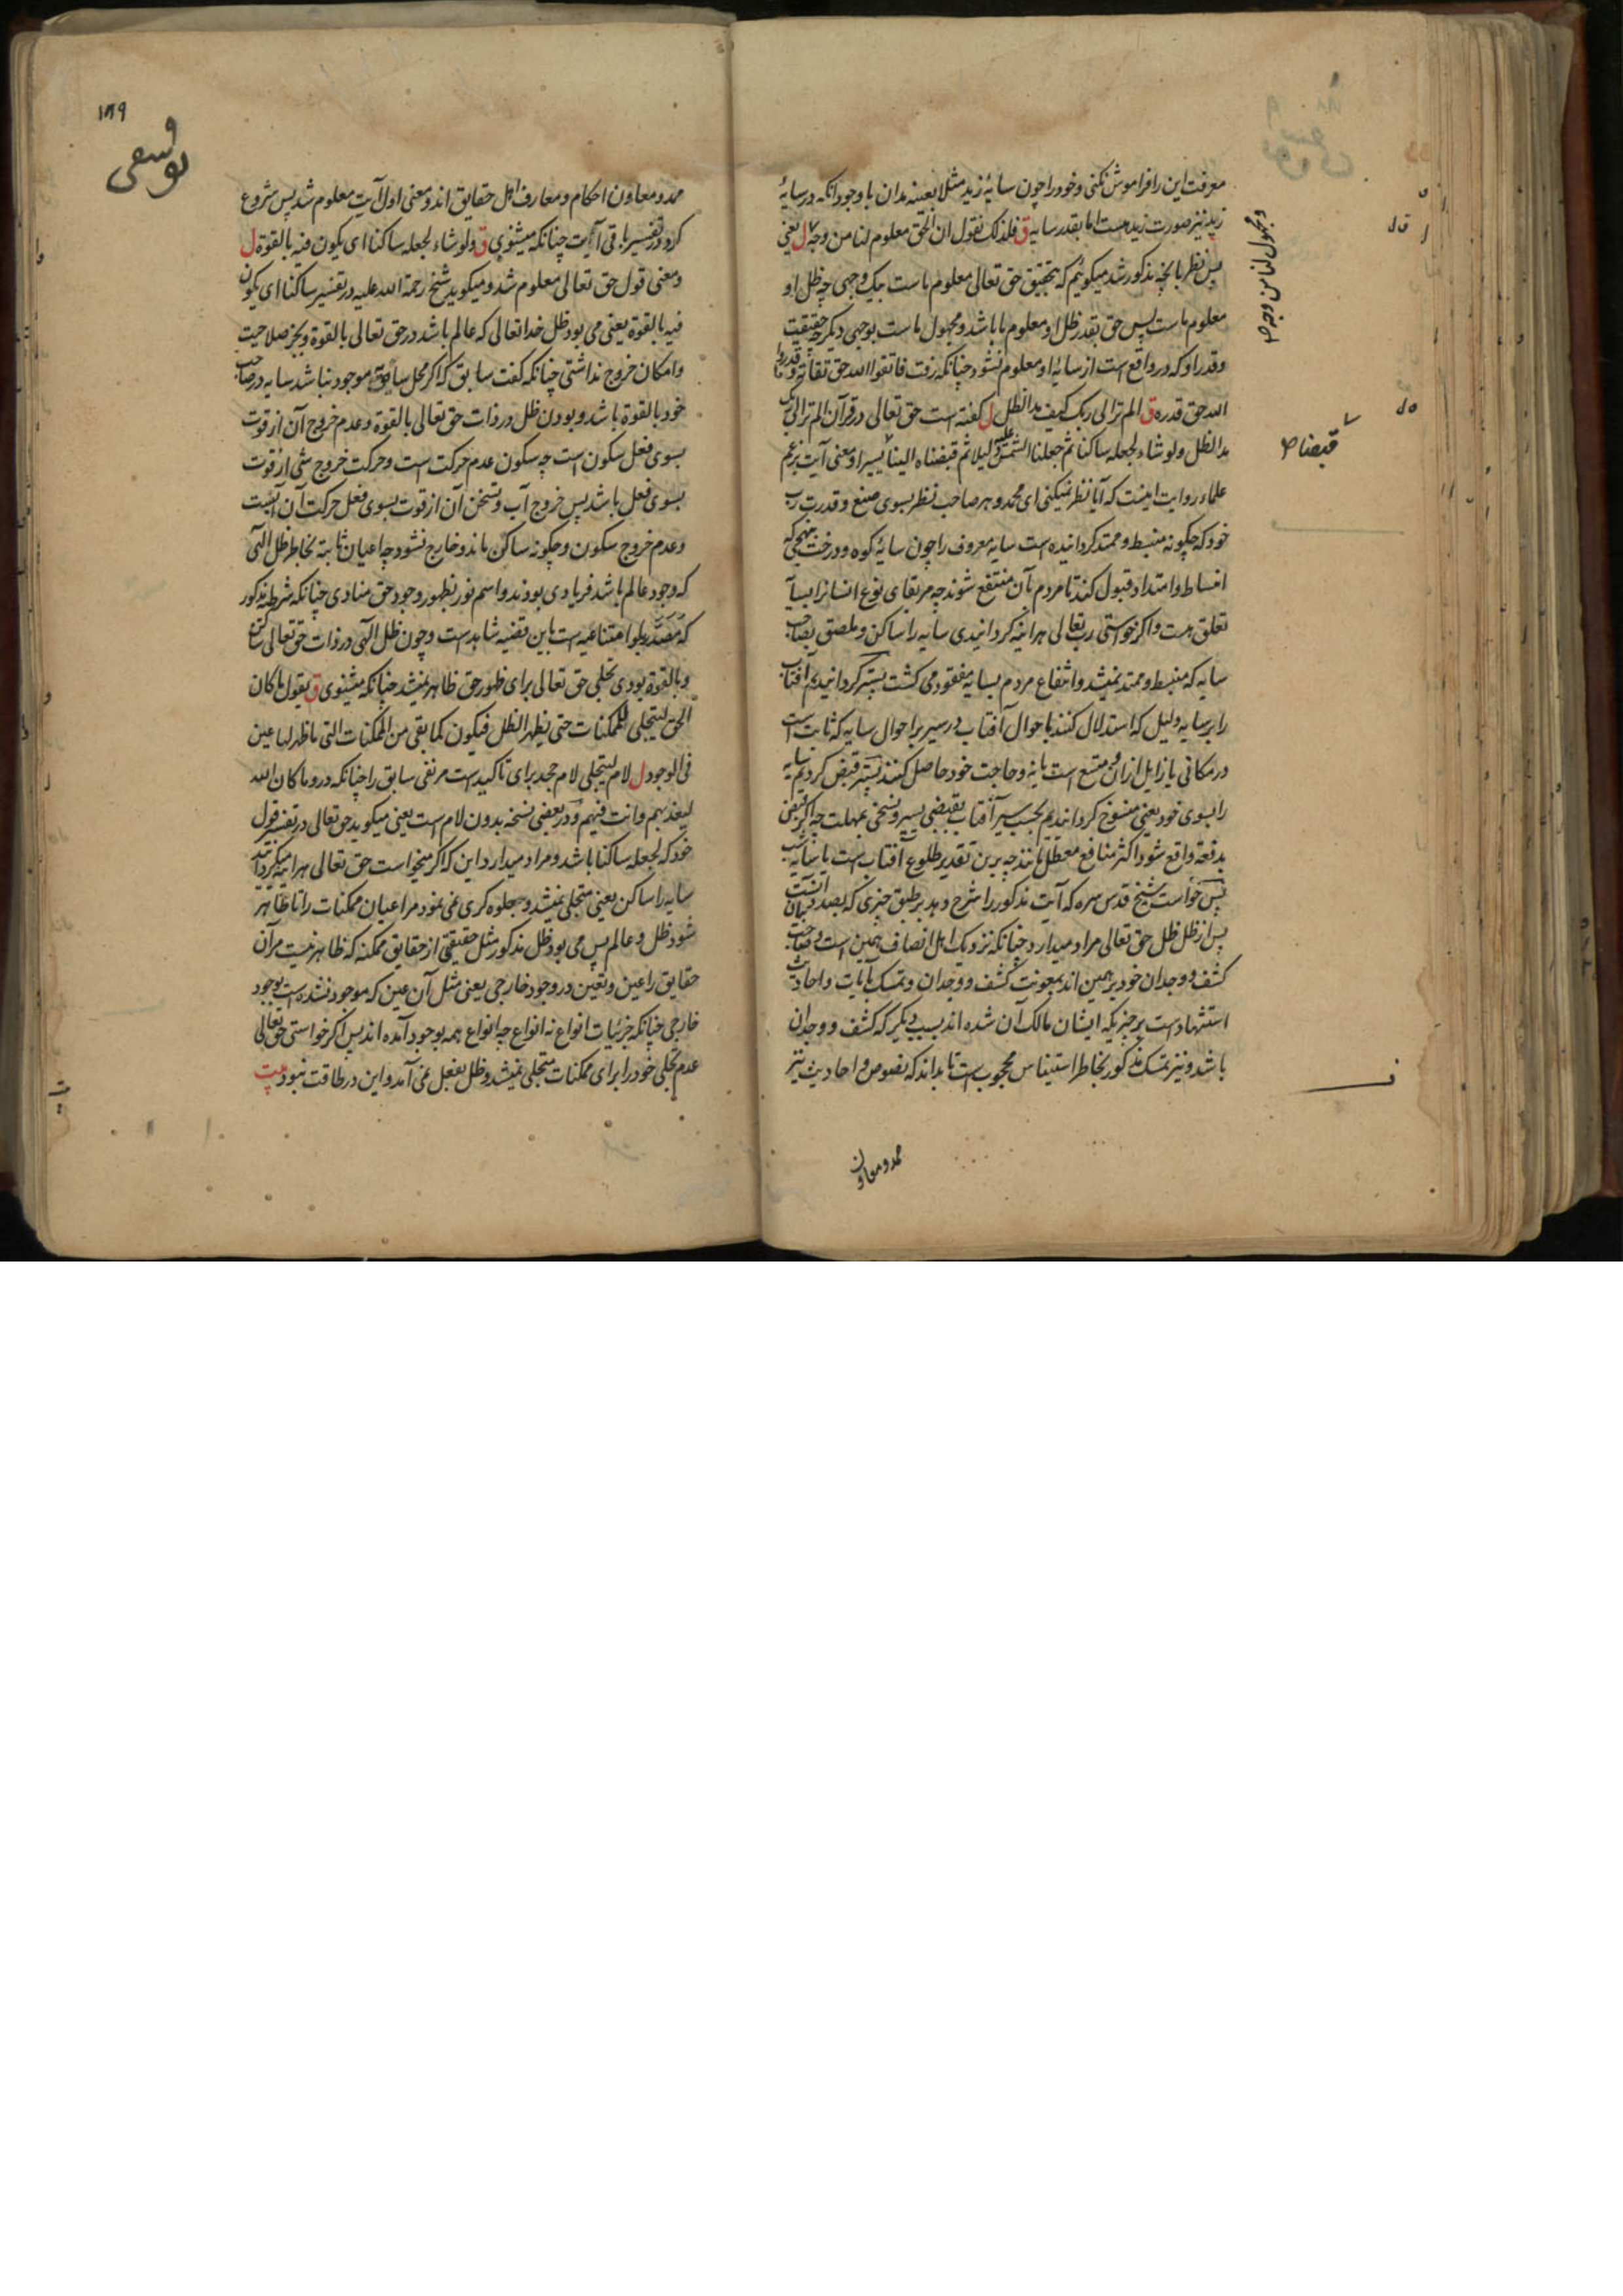 معرفت این را فراموش نکنی و خود را چون سایهٔ زید مثلا بعینه بدان با وجود آنکه در سایهٔ
زید نیز صورت زید هست اما بقدر سایه ق فلذلک نقول ان الحق معلوم لنا من وجه ل یعنی
و مجهول لنا من وجه صح
پس نظر بآنچه مذکور شد میکوئیم که بتحقیق حق تعالی معلوم ماست بیک وجهی چه ظل او
معلوم ماست پس حق بقدر ظل او معلوم ما باشد و مجهول ماست بوجهی دیکر چه حقیقت
وقدر او که در واقع است از سایهٔ او معلوم نشود چنانکه رفت فاتقوا الله حق تقاته و ما قدروا
الله حق قدره ق الم تر الی ربک کیف مد الظل ل کفته است حق تعالی در قرآن الم تر الی ربک
مد الظل ولو شاء لجعله ساکنا ثم جعلنا الشمس علیه دلیلا ثم قبضناه الینا یسیرا و معنی آیت بزعم
قبضا صح
علماء روایت اینست که آیا نظر نمیکنی ای محمد و هر صاحب نظر بسوی صنع و قدرت رب
خود که چکونه منبسط و ممتد کردانیده است سایه معروف را چون سایهٔ کوه و درخت بنهجی که
انبساط و امتداد قبول کند تا مردم بآن منتفع شوند چه مر بقای نوع انسانرا بسایه
تعلق هست و اکر خواستی رب تعالی هراینه کردانیدی سایه را ساکن و ملصق بصاحب
سایه که منبسط و ممتد نمیشد و انتفاع مردم بسایه مفقود می کشت پستر کردانیدیم آفتاب
را بر سایه دلیل که استدلال کنند باحوال آفتاب در مسیر بر احوال سایه که ثابت است
در مکانی یا زایل ازان و متسع است یا نه و حاجت خود حاصل کنند پستر قبض کردیم سایه
را بسوی خود یعنی منسوخ کردانیدیم بحسب سیر آفتاب بقبضی یسیر و نسخی بمهلت چه اکر قبض
بدفعة واقع شود اکثر منافع معطل مانند چه برین تقدیر طلوع آفتاب است یا سایه شب
پس خواست شیخ قدس سره که آیت مذکور را شرح دهد بر طبق چیزی که بصدد بیان آنست
پس از ظل ظل حق تعالی مراد میدارد چنانکه نزدیک اهل انصاف همین است و صاحب
کشف و وجدان خود برهمین اند بمعونت کشف و وجدان و تمسک بآیات و احادیث
استشهاد است بر چیزیکه ایشان مالک آن شده اند بسبب دیکر که کشف و وجدان
باشد و نیز تمسک مذکور بخاطر استیناس محجوب است تا بداند که نصوص و احادیث نیز
ممد و معاون
۱۸۹
یوسفی
ممد و معاون احکام و معارف اهل حقایق اند و معنی اول آیت معلوم شد پس شروع
کرد در تفسیر باقی آیت چنانکه میشنوی ق ولو شاء لجعله ساکنا ای یکون فیه بالقوة ل
و معنی قول حق تعالی معلوم شد و میکوید شیخ رحمة الله علیه در تفسیر ساکنا ای یکون
فیه بالقوة یعنی می بود ظل خدا تعالی که عالم باشد در حق تعالی بالقوة و بجز صلاحیت
و امکان خروج نداشتی چنانکه کفت سابق که اکر محل سایه موجود نباشد سایه در صاحب
خود بالقوة باشد و بودن ظل در ذات حق تعالی بالقوة و عدم خروج آن از قوت
بسوی فعل سکون است چه سکون عدم حرکت است و حرکت خروج شی از قوت
بسوی فعل باشد پس خروج آب و تسخن آن از قوت بسوی فعل حرکت آن آبست
و عدم خروج سکون و چکونه ساکن ماند و خارج نشود چه اعیان ثابته بخاطر ظل الهی
که وجود عالم باشد فریادی بودند و اسم نور بظهور وجود حق منادی چنانکه شرطیه مذکور
که مصدر بلو امتناعیه است باین قضیه شاهد است و چون ظل الهی در ذات حق تعالی ساکن
و بالقوة بودی تجلی حق تعالی برای ظهور حق ظاهر نمیشد چنانکه میشنوی ق یقول ما کان
الحق لیتجلی للممکنات حتی یظهر الظل فیکون کما بقی من الممکنات التی ما ظهر لها عین
فی الوجود ل لام لیتجلی لام جحد برای تاکید است مر نفی سابق را چنانکه در و ما کان الله
لیعذبهم و انت فیهم و در بعضی نسخه بدون لام است یعنی میکوید حق تعالی در تفسیر قول
خود که لجعله ساکنا باشد و مراد میدارد این که اکر میخواست حق تعالی هراینه میکردانید
سایه را ساکن یعنی متجلی نمیشد و جلوه کری نمی نمود مر اعیان ممکنات را تا ظاهر
شود ظل و عالم پس می بود ظل مذکور مثل حقیقتی از حقایق ممکنه که ظاهر نیست مر آن
حقایق را عین و تعین در وجود خارجی یعنی مثل آن عین که موجود نشده است بوجود
خارجی چنانکه جزئیات انواع نه انواع چه انواع همه بوجود آمده اند پس اکر خواستی حق تعالی
عدم تجلی خود را برای ممکنات متجلی نمیشد و ظل بفعل نمی آمد و این در طاقت نبود بیت